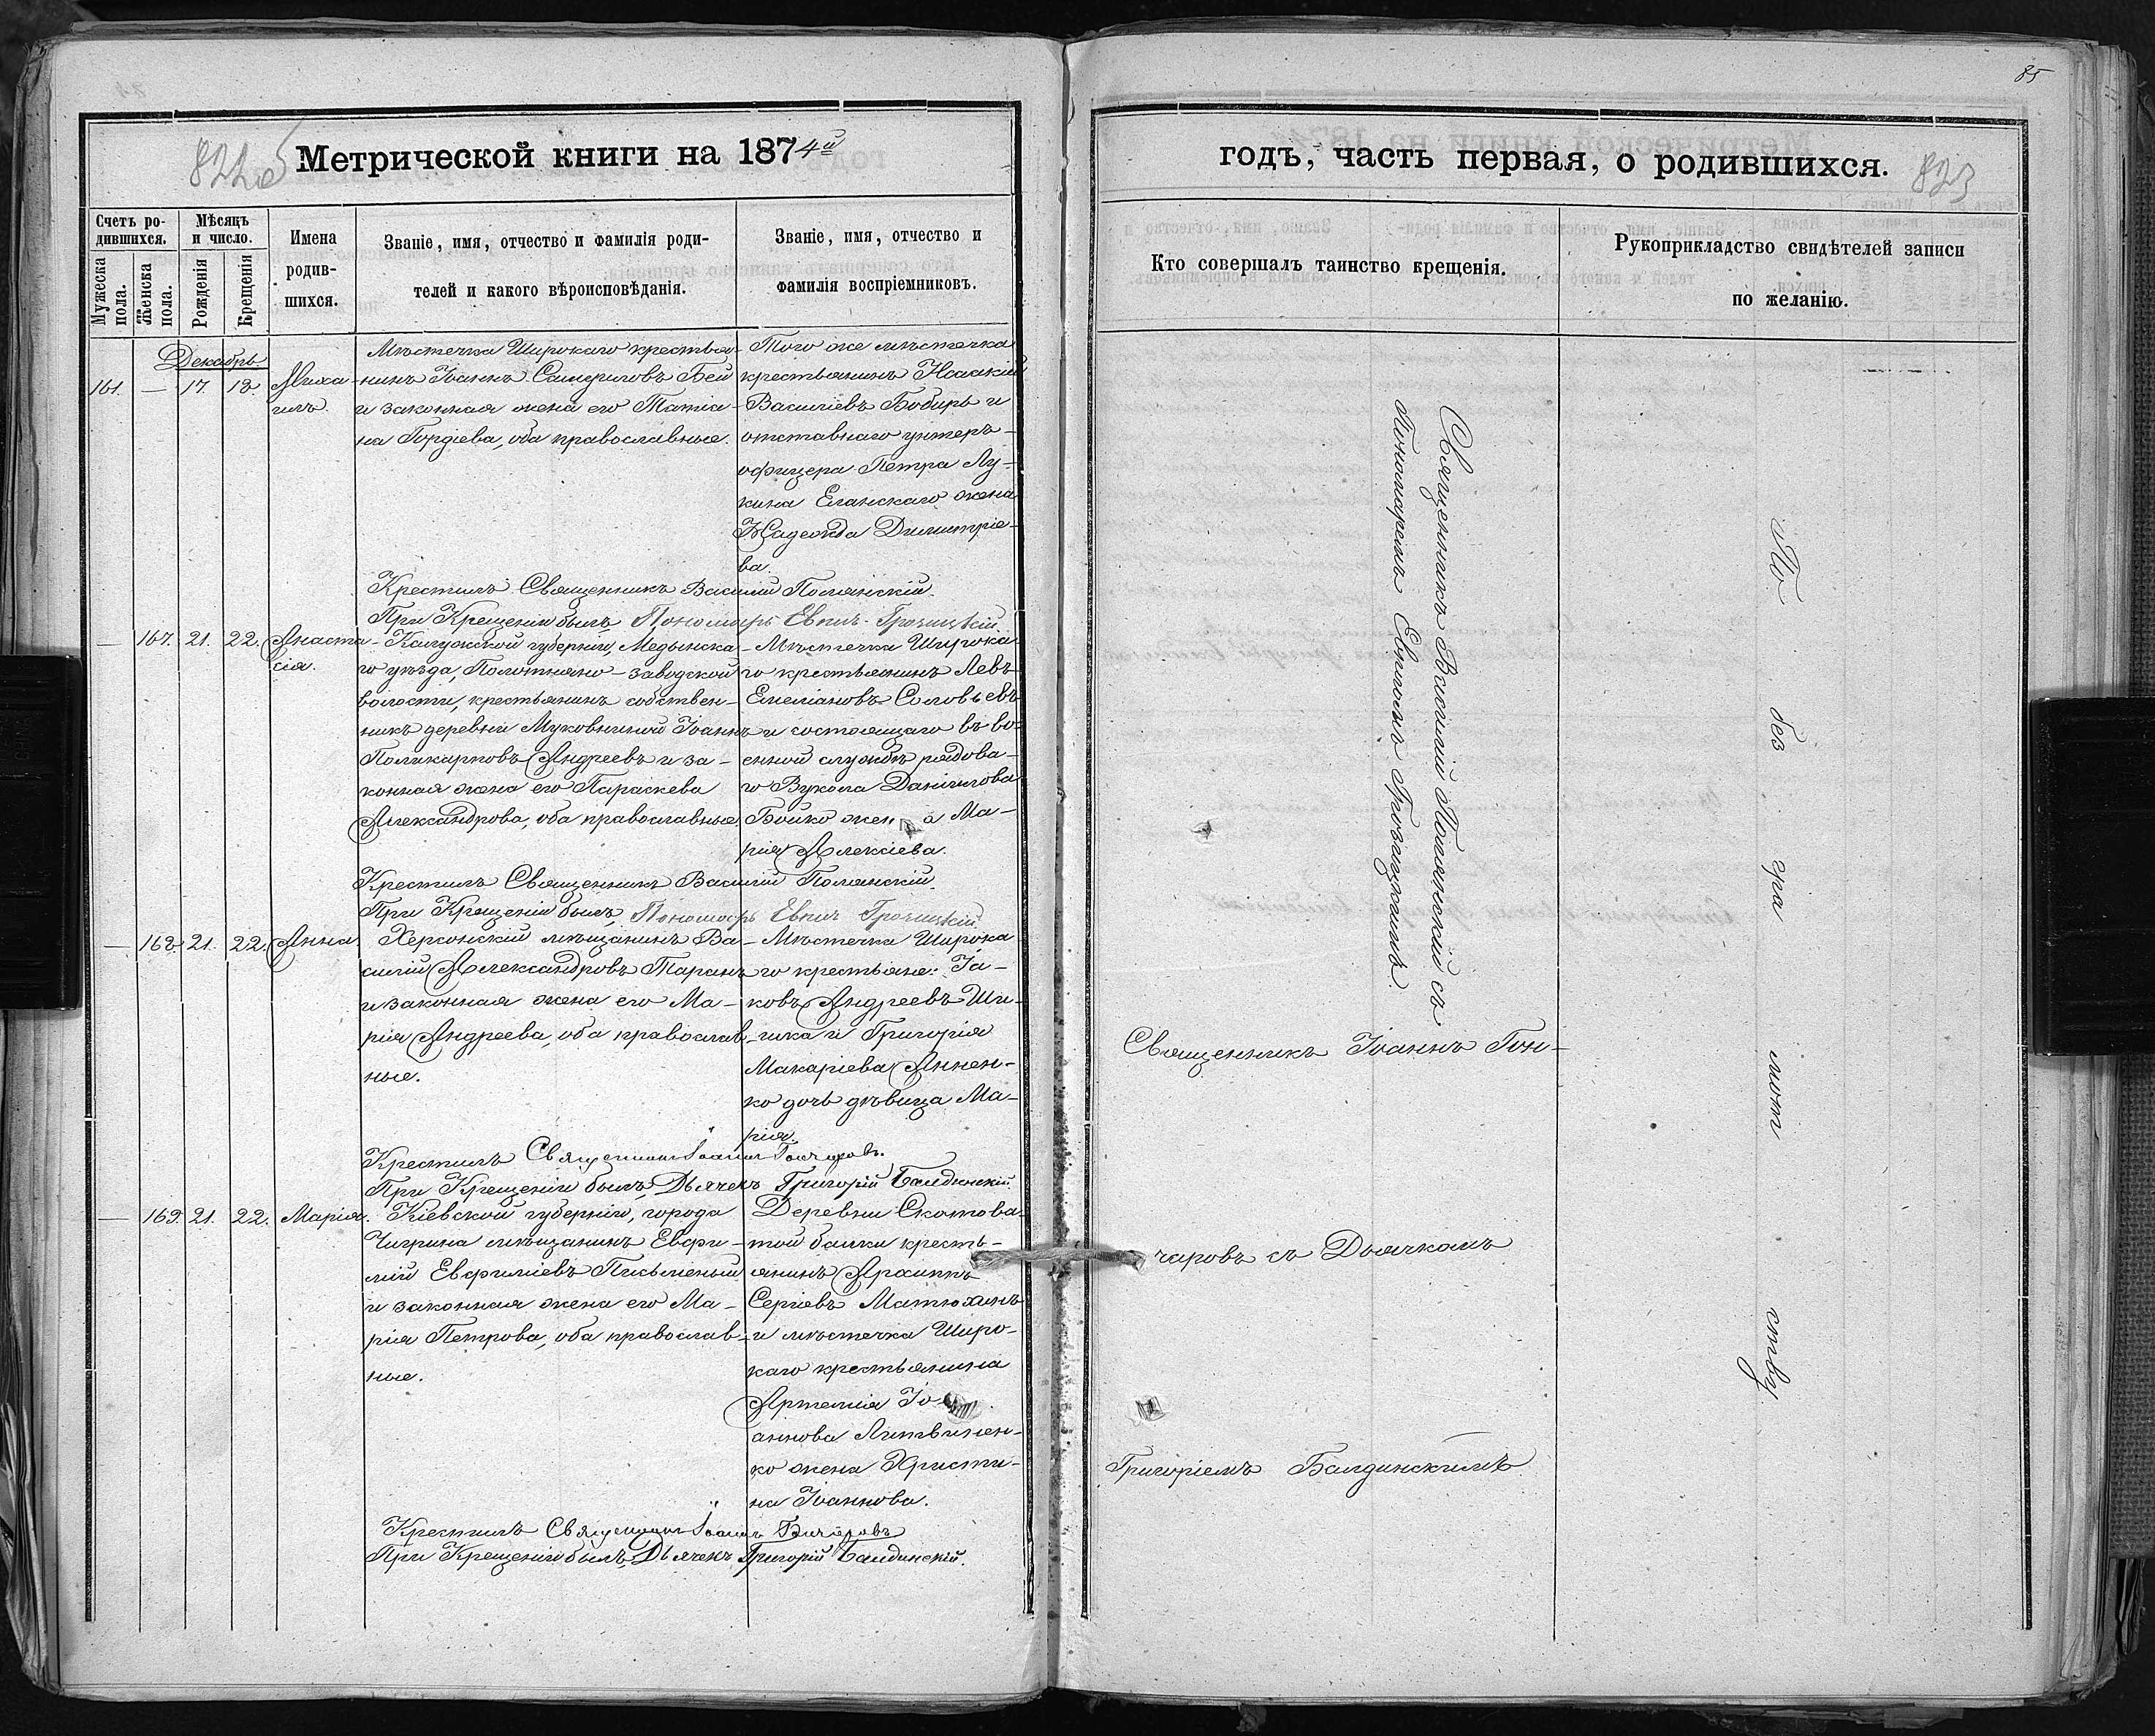 85
822об
Метрической книги на 1874й
годъ, часть первая, о родившихся.
823
Счетъ родившихся.
Мужеска пола.
Женска пола.
Мѣсяцъ и число.
Рожденія
Крещенія
Имена
родив-
шихся.
Званіе, имя, отчество и фамилія роди-
телей и какого вѣроисповѣданія.
Званіе, имя, отчество и
фамилія воспріемниковъ.
Кто совершалъ таинство крещенія.
Рукоприкладство свидѣтелей записи
по желанію.
Декабрь.
161. — 17. 18. Миха-
илъ.
Мѣстечка Широкаго крестья-
нинъ Іоаннъ Самуиловъ Бей
и законная жена его Татіа-
на Гордіева, оба православные.
Того же мѣстечка
крестьянинъ Исаакій
Василіевъ Бобырь и
отставнаго унтеръ-
офицера Петра Лу-
кина Еланскаго жена
Надежда Димитріе-
ва.
Крестилъ Священникъ Василій Полянскій.
При Крещеніи былъ Пономарь
— 167. 21. 22. Анаста-
сія.
Калужской губерніи, Медынска-
го уѣзда, Полотняно-заводской
волости, крестьянинъ собствен-
никъ деревни Муковниной Іоаннъ
Поликарповъ Андреевъ и за-
конная жена его Параскева
Александрова, оба православные.
Мѣстечка Широка-
го крестьянинъ Левъ
Емеліановъ Соловьевъ
и состоящаго въ во-
енной службѣ рядова-
го Вукола Даніилова
Бойко жена Ма-
рія Алексіева.
Крестилъ Священникъ Василій Полянскій.
При Крещеніи былъ Пономарь
— 168. 21. 22. Анна
Херсонскій мѣщанинъ Ва-
силій Александровъ Таранъ
и законная жена его Ма-
рія Андреева, оба православ-
ные.
Мѣстечка Широка-
го крестьяне: Іа-
ковъ Андреевъ Ши-
шка и Григорія
Макаріева Аннен-
ко дочь дѣвица Ма-
рія.
Крестилъ Священникъ Іоаннъ Гончаровъ.
При Крещеніи былъ Дьячекъ Григорій Балдинскій.
— 169. 21. 22. Марія.
Кіевской губерніи, города
Чигрина мѣщанинъ Евфи-
мій Евфиміевъ Письменый
и законная жена его Ма-
рія Петрова, оба православ-
ные.
Деревни Скотова-
той балки кресть-
янинъ Архиппъ
Сергіевъ Матюхинъ
и мѣстечка Широ-
каго крестьянина
Артемія Іо-
аннова Литвинен-
ко жена Христи-
на Іоаннова.
Крестилъ Священникъ Іоаннъ Гончаровъ
При Крещеніи былъ Дьячекъ Григорій Балдинскій.
Священникъ Василій Полянскій съ
Пономаремъ
Священникъ Іоаннъ Гон-
чаровъ съ Дьячкомъ
Григоріемъ Балдинскимъ.
По без гра мот ству